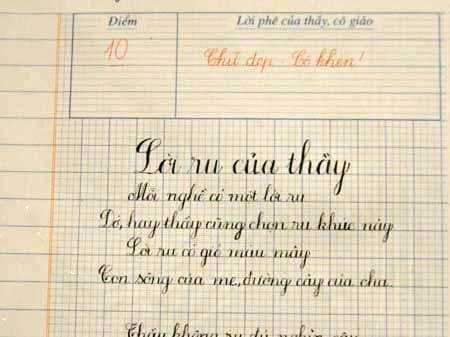 Điểm Lời phê của thầy, cô giáo
10 Chữ đẹp. Cô khen!
Lời ru của thầy
Mỗi nghề có một lời ru
Dở, hay thầy cũng chọn ru khúc này
Lời ru có gió màu mây
Con sông của mẹ, đường cày của cha.
Thầy không ru đủ nghìn câu